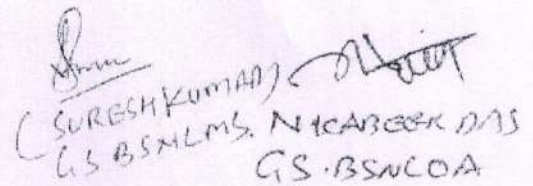 (SURESH KUMAR)
GS BSNLMS.
N KABEER DAS
GS.BSNLOA